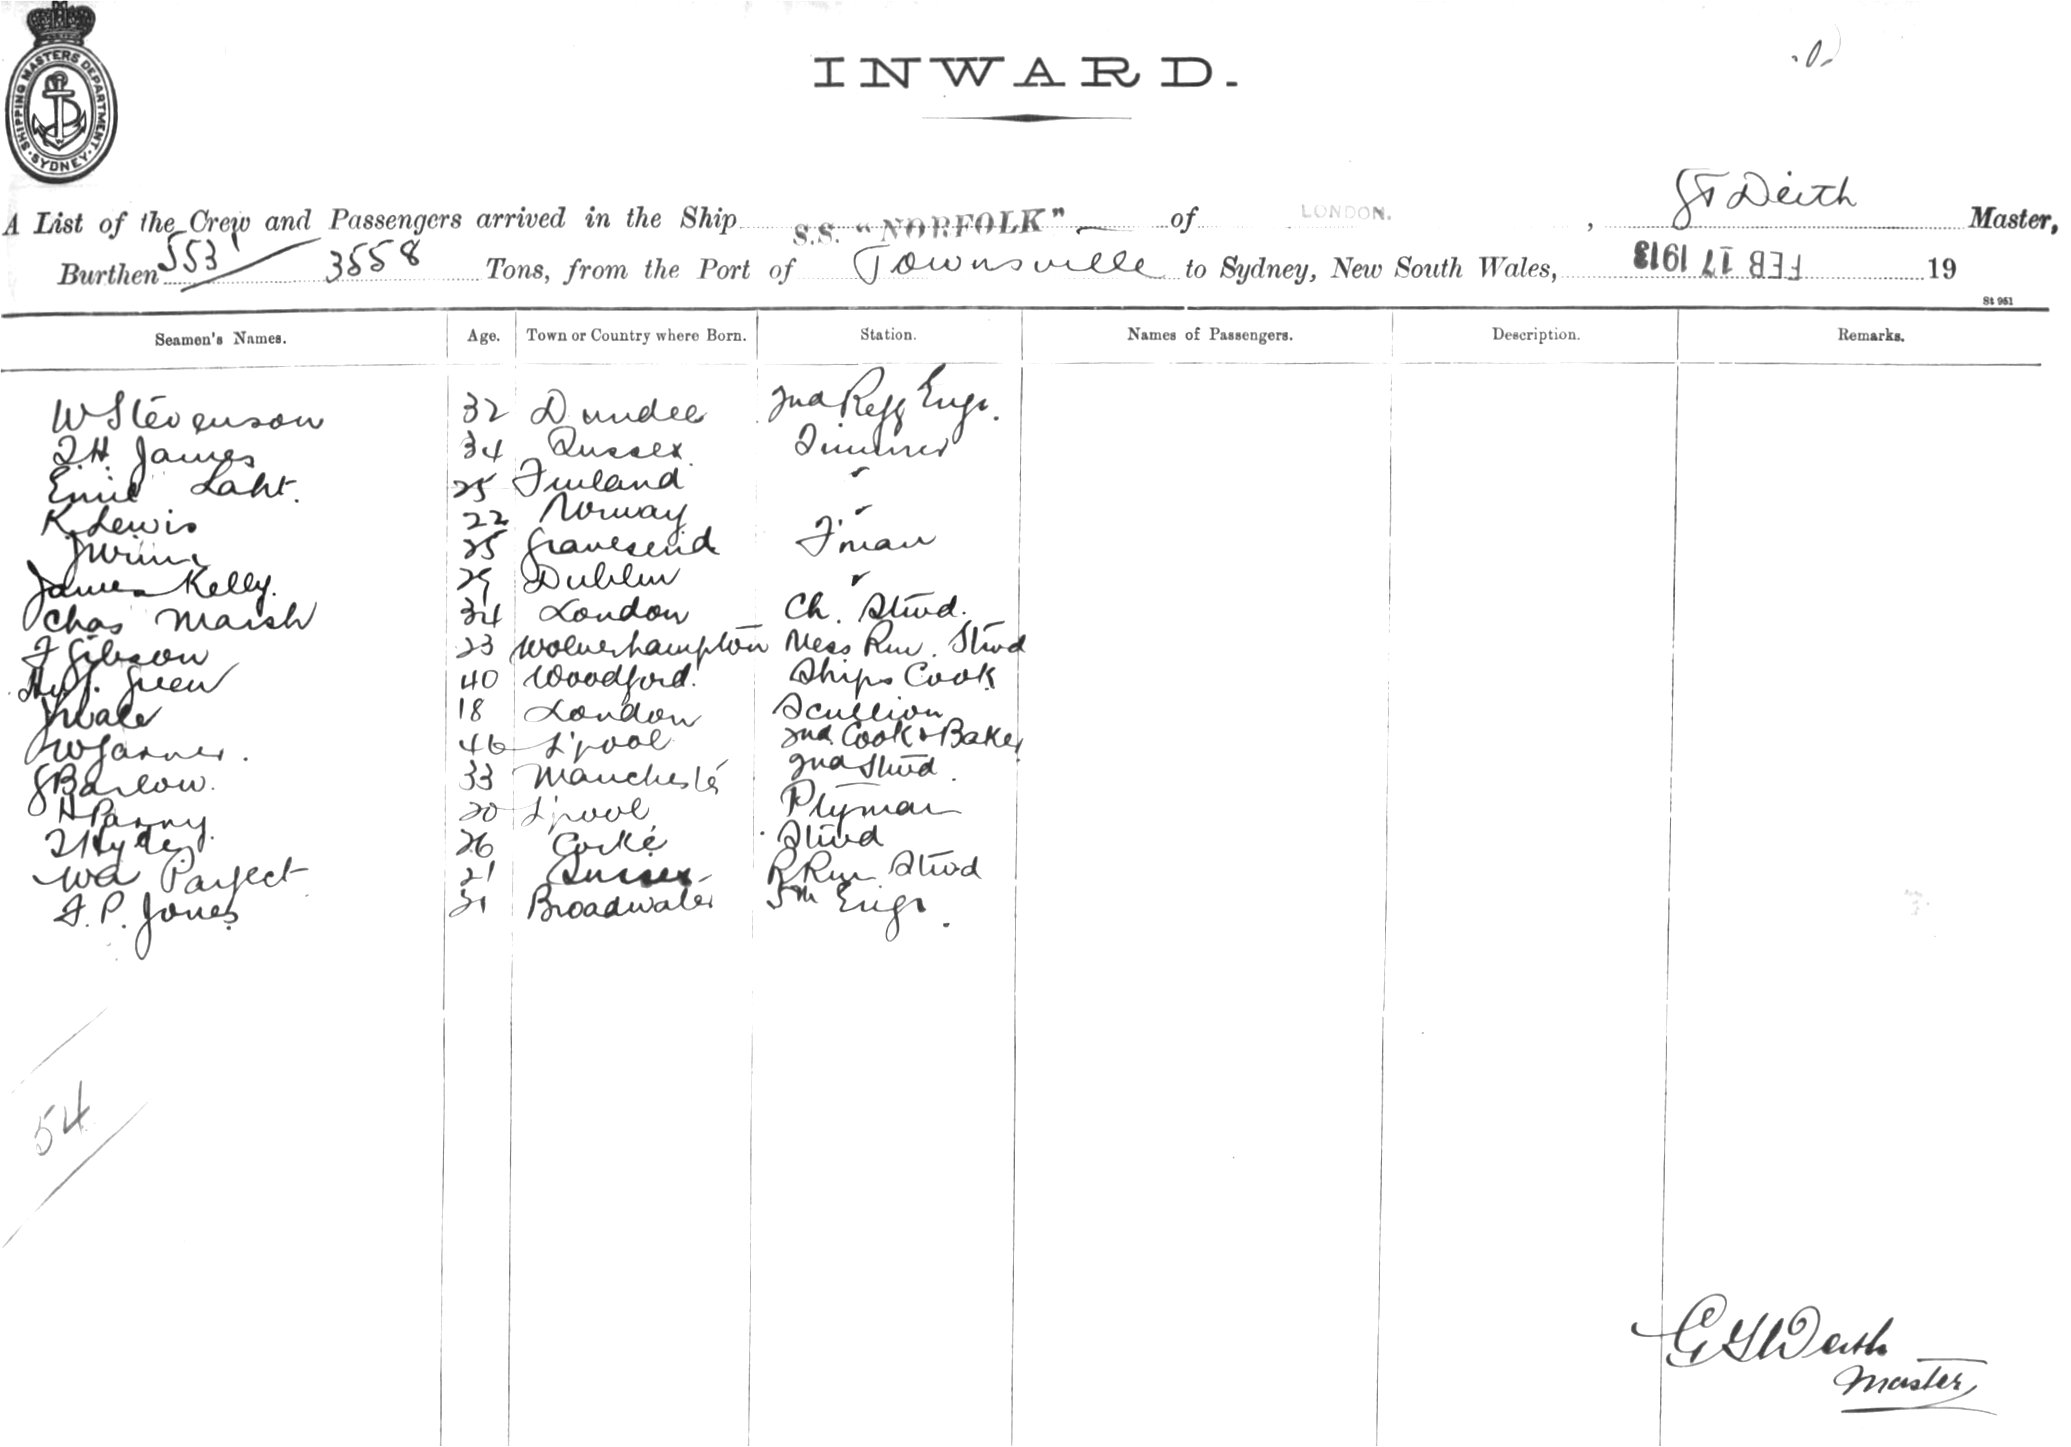 SHIPPING MASTERS DEPARTMENT
SYDNEY
INWARD.
A List of the Crew and Passengers arrived in the Ship S.S. "NORFOLK" of LONDON. , Deith Master,
Burthen 5531 / 3558 Tons, from the Port of Townsville to Sydney, New South Wales, FEB 17 1913 19
St 951
Seamen's Names. Age. Town or Country where Born. Station. Names of Passengers. Description. Remarks.
W Stevenson 32 Dundee 2nd Refg Engr.
T.H. James 34 Sussex Trimmer
Emil Laht. 25 Finland "
K. Lewis 22 Norway "
J 25 Gravesend F'man
James Kelly. 29 Dublin "
Chas Marsh 34 London Ch. Stwd.
F Gibson 23 Wolverhampton Mess Rm. Stwd
Hy J. Green 40 Woodford. Ships Cook
18 London Scullion
W Garner. 46 L'pool 2nd Cook & Baker
G Barlow. 33 Manchester 2nd Stwd.
H Parry. 20 L'pool P'tryman
T Hyde. 26 Corke Stwd
W A Parfect 21 Sussex R Rm Stwd
F. P. Jones 31 Broadwater 5th Engr.
54
Deith
Master